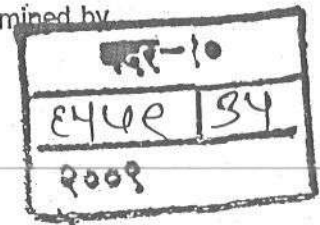 mined by
बदर-१०
६५५९ | ३५
२००९